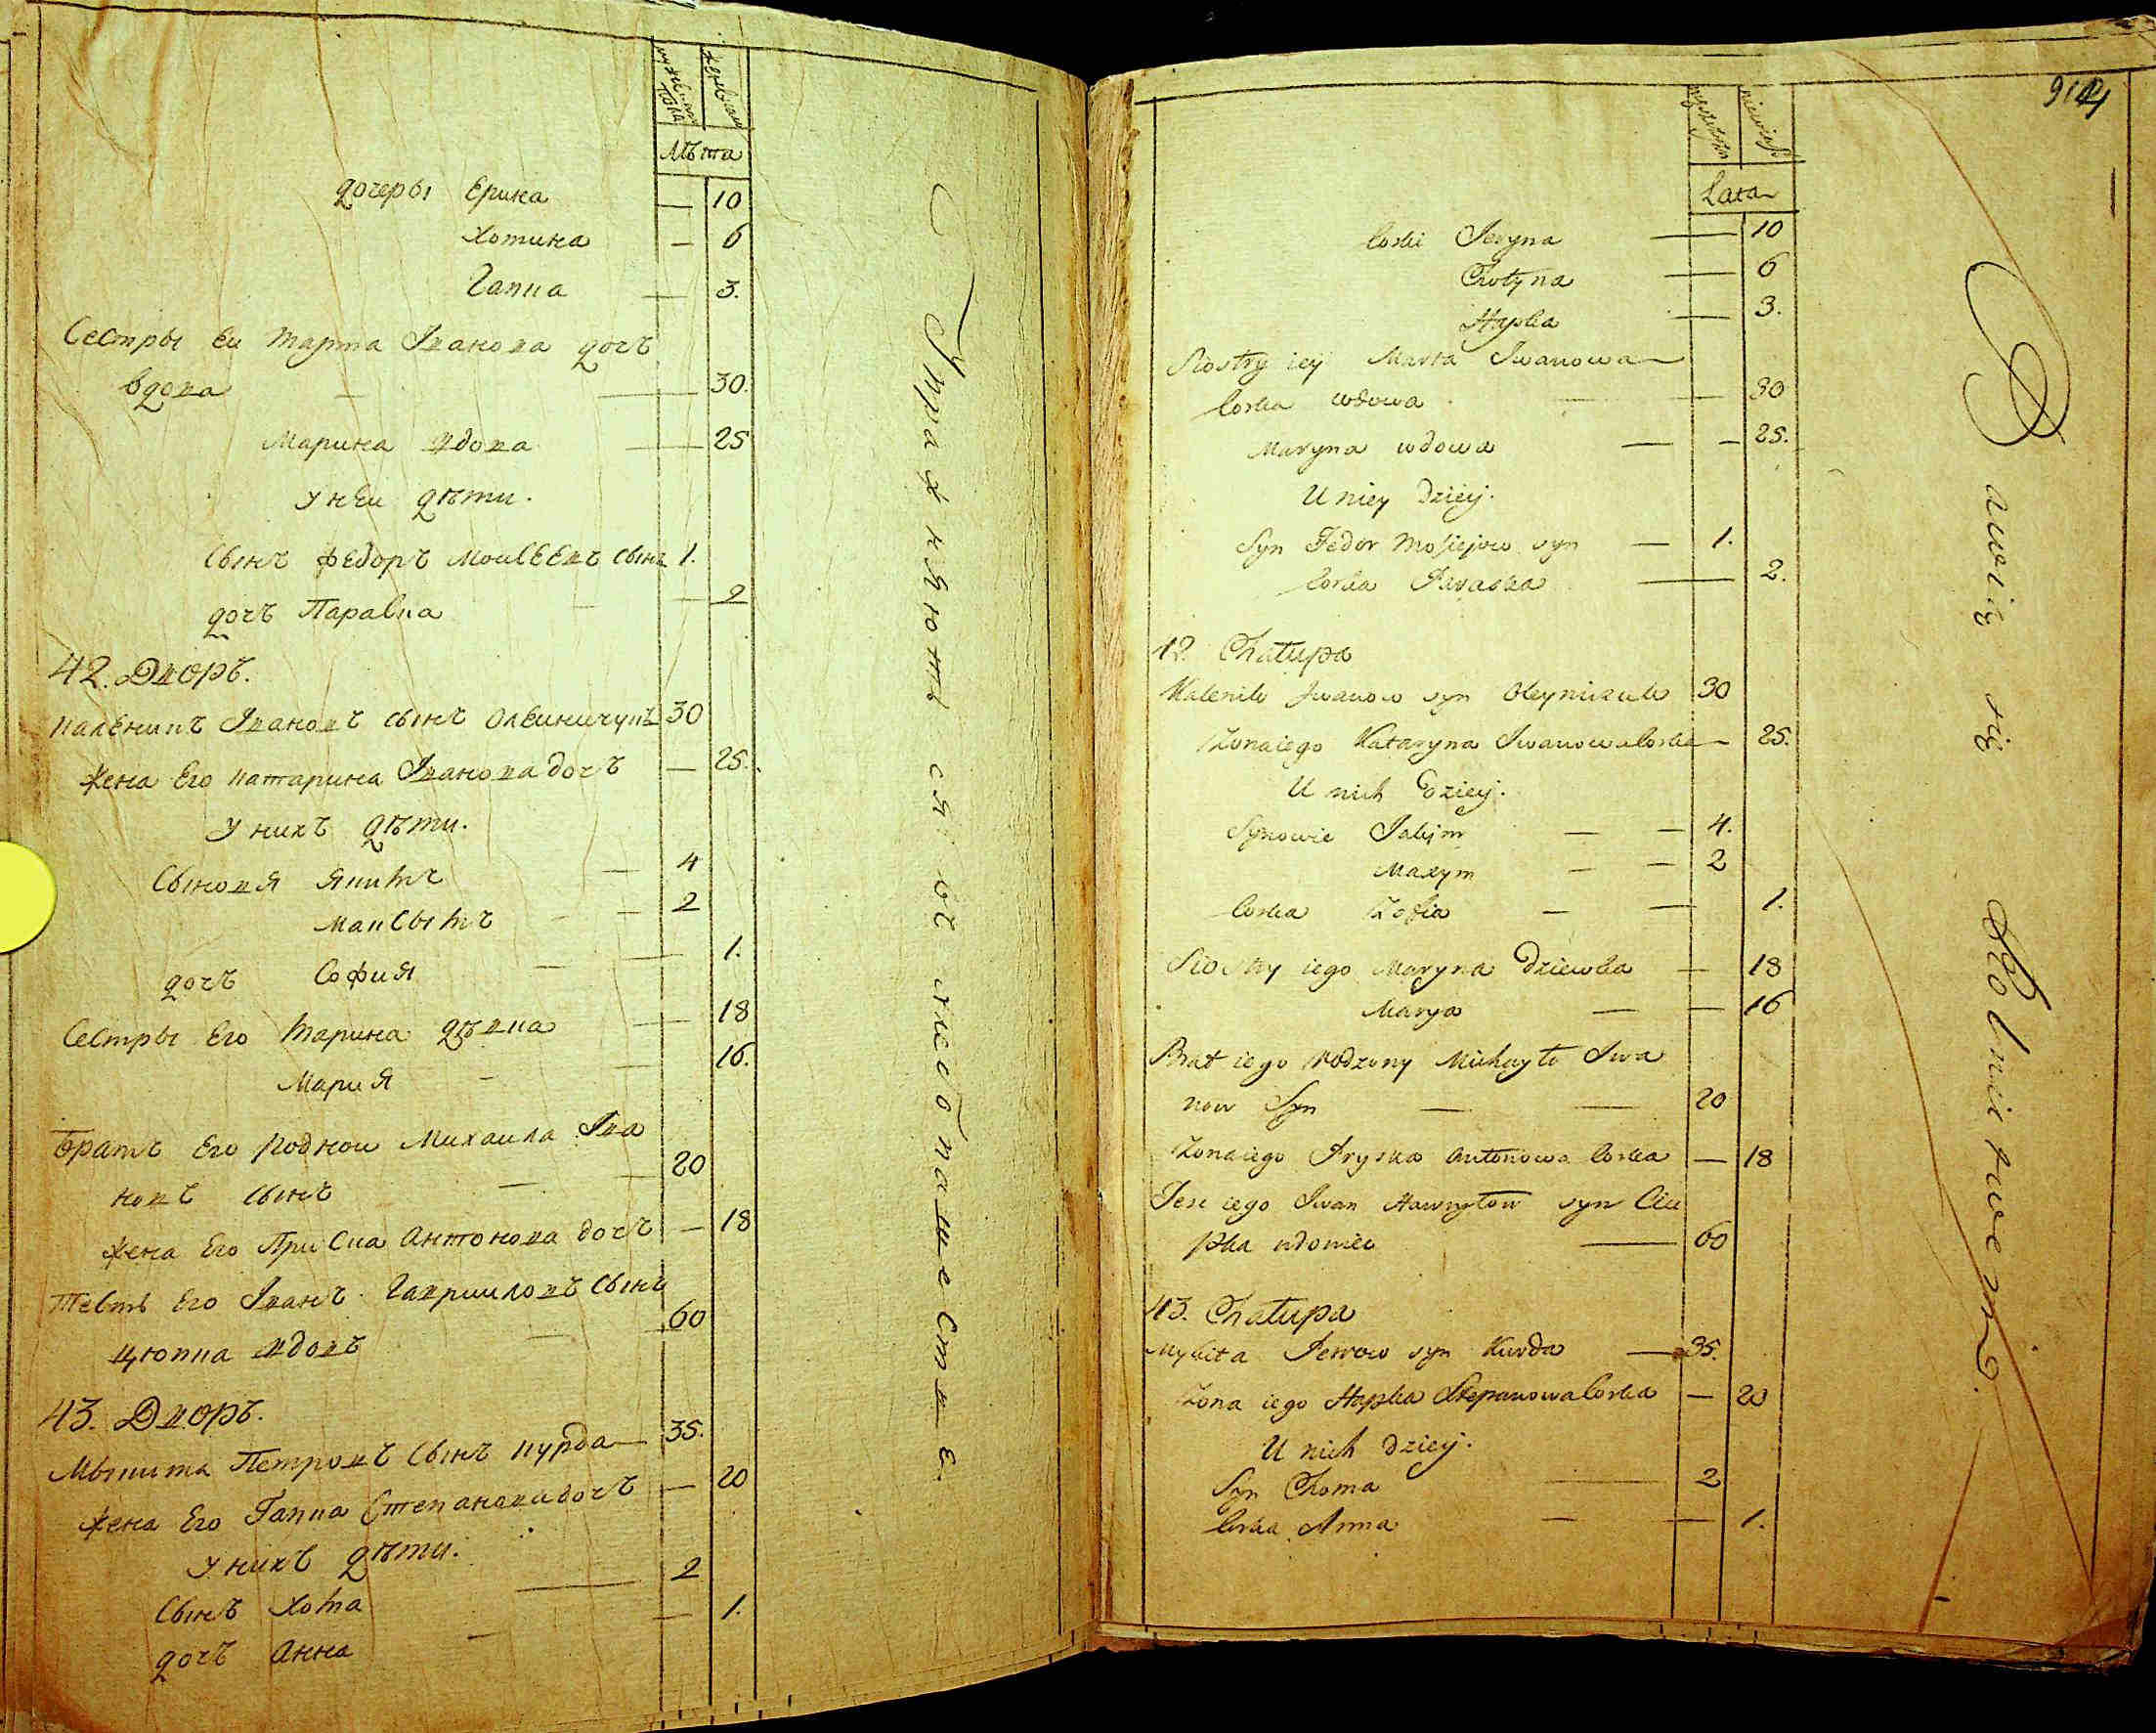 Лѣта
дочеры Ерина — 10
Хотина — 6
Гапка — 3.
Сестры Еи Марта Іванова дочь
вдова — 30.
Марина вдова — 25
У неи дѣти.
Сынъ Федоръ Моисеевъ сынъ 1.
дочъ Параска — 2
42. Дворъ.
Каленикъ Івановъ сынъ Олейничукъ 30
Жена Его Катарина Іванова дочъ — 25.
У нихъ дѣти.
Сыновя Якимъ — 4
Максымъ — 2
дочъ София — 1.
Сестры Его Марина дѣвка — 18
Мария — 16.
Братъ Его Роднои Михаила Іва
новъ сынъ — 20
Жена Его Приска Антонова дочъ — 18
Тесть Его Іванъ Гавриловъ Сынъ
Цюпка вдовъ — 60
43. Дворъ.
Мыкита Петровъ Сынъ Курда — 35.
Жена Его Гапка Степанова дочъ — 20
У нихъ дѣти.
Сынъ Хома — 2
дочъ Анна — 1.
Упражняютъ ся въ хлебопашестве.
914
Lata
Corki Jeryna — 10
Chotyna — 6
Hapka — 3.
Siostry iey Marta Iwanowa
Corka wdowa — 30
Maryna wdowa — 25.
U niey Dzieci.
Syn Fedor Mosiejow syn — 1.
Corka Paraska — 2.
42. Chatupa
Kalenik Iwanow syn Oleyniczuk 30
Zona iego Kataryna Iwanowa Corka — 25.
U nich Dzieci.
Synowie Jakym — 4.
Maxym — 2
Corka Zofia — 1.
Siostry iego Maryna Dziewka — 18
Marya — 16
Brat iego Rodzony Michayło Iwa
now Syn — 20
Zona iego Pryska Antonowa Corka — 18
Tesc iego Iwan Hawryłow syn Ciu
pka wdowiec — 60
43. Chatupa
Mykita Petrow syn Kurda — 35.
Zona iego Hapka Stepanowa Corka — 20
U nich dzieci.
Syn Choma — 2
Corka Anna — 1.
Bawią się Rolnictwem.